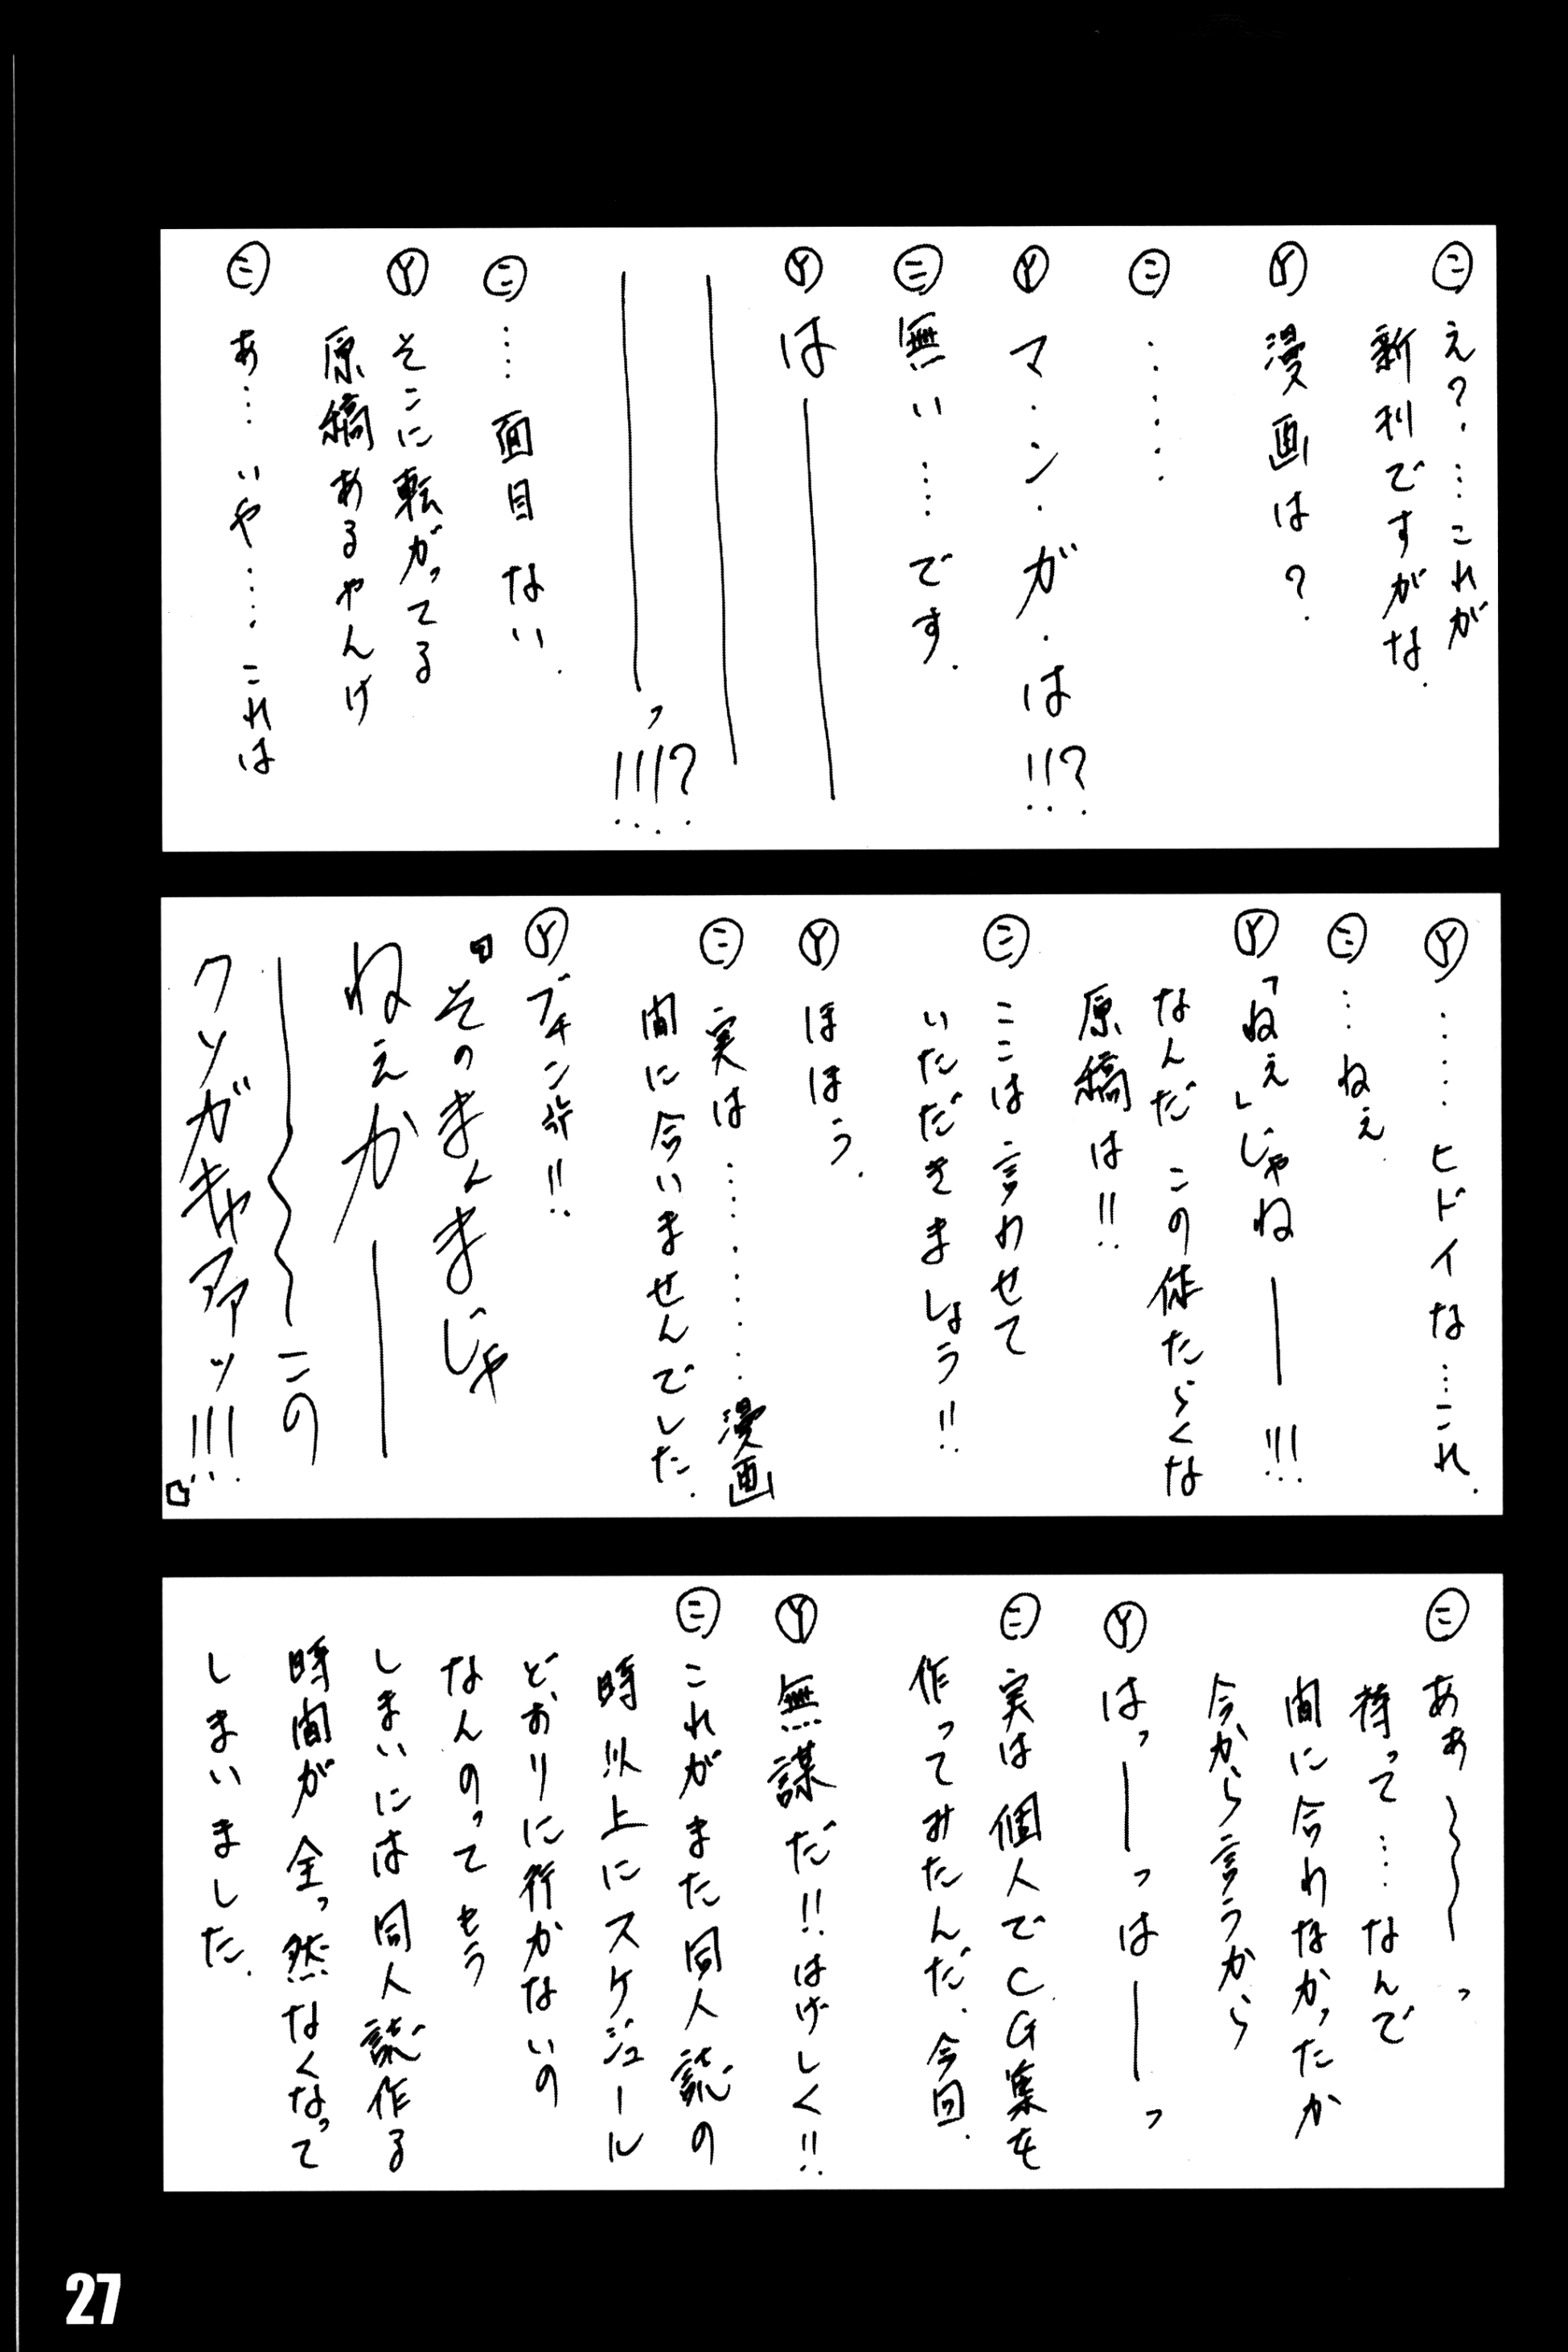 ㊁ え?…これが
新刊ですがな.
Ⓨ 漫画は?
㊁ ……
Ⓨ マ・ン・ガ・は!!?
㊁ 無い…です.
Ⓨ は――――
――――
――――っ!!!?
㊁ …面目ない.
Ⓨ そこに転がってる
原稿あるやんけ
㊁ あ…いや……これは
Ⓨ ……ヒドイな…これ.
㊁ …ねえ.
Ⓨ 「ねえ」じゃね――!!!
なんだ この体たらくな
原稿は!!
㊁ ここは言わせて
いただきましょう!!
Ⓨ ほほう.
㊁ 実は………漫画
間に合いませんでした.
Ⓨ ブチン!!
そのまんまじゃ
ねえか――
――〜〜この
クソガキャアアッ!!!
㊁ ああ〜〜〜っ
待って…なんで
間に合わなかったか
今から言うから
Ⓨ はっ――っは――っ
㊁ 実は個人でCG集を
作ってみたんだ.今回.
Ⓨ 無謀だ!!はげしく!!
㊁ これがまた同人誌の
時以上にスケジュール
どおりに行かないの
なんのってもう
しまいには同人誌作る
時間が全っ然なくなって
しまいました.
27